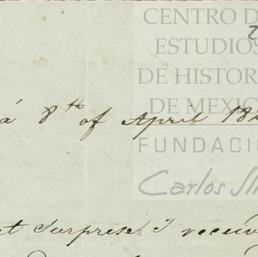 CENTRO D
ESTUDIOS
DE HISTOR
DE MEXIC
FUNDACI
Carlos Sli
á 8th of April 18
t Surprise I receiv